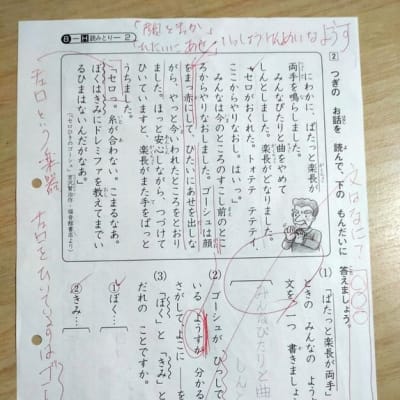 8 ─H 読みとり─ 2
「顔をまっか
ひたいにあせ いっしょうけんめいなようす
2 つぎの お話を 読んで、下の もんだいに 答えましょう。
にわかに ぱたっと楽長が
両手を鳴らしました。
みんなぴたりと曲をやめて
しんとしました。楽長がどなりました。
「セロがおくれた。トォテテ テテテイ、
ここからやりなおし。はいっ。」
みんなは今のところのすこし前のとこ
ろからやりなおしました。ゴーシュは顔
をまっ赤にして、ひたいにあせを出しな
がら、やっと今いわれたところをとおり
ました。ほっと安心しながら、つづけて
ひいていますと、楽長がまた手をぱっと
うちました。
「セロっ。糸が合わない。こまるなあ。
ぼくはきみにドレミファを教えてまでい
るひまはないんだがなあ。」
(1) 「ぱたっと楽長が両手」
ときの みんなの よう
文を 一つ 書きましょ
みんなぴたりと曲
しん
(2) ゴーシュが ひっし
いる ようすが 分かる
さがして、よこに
(3) 「ぼく」と 「きみ」と
だれの ことですか。
①ぼく…
②きみ…
文はなに?
セロという楽器
セロをひいているのはゴー